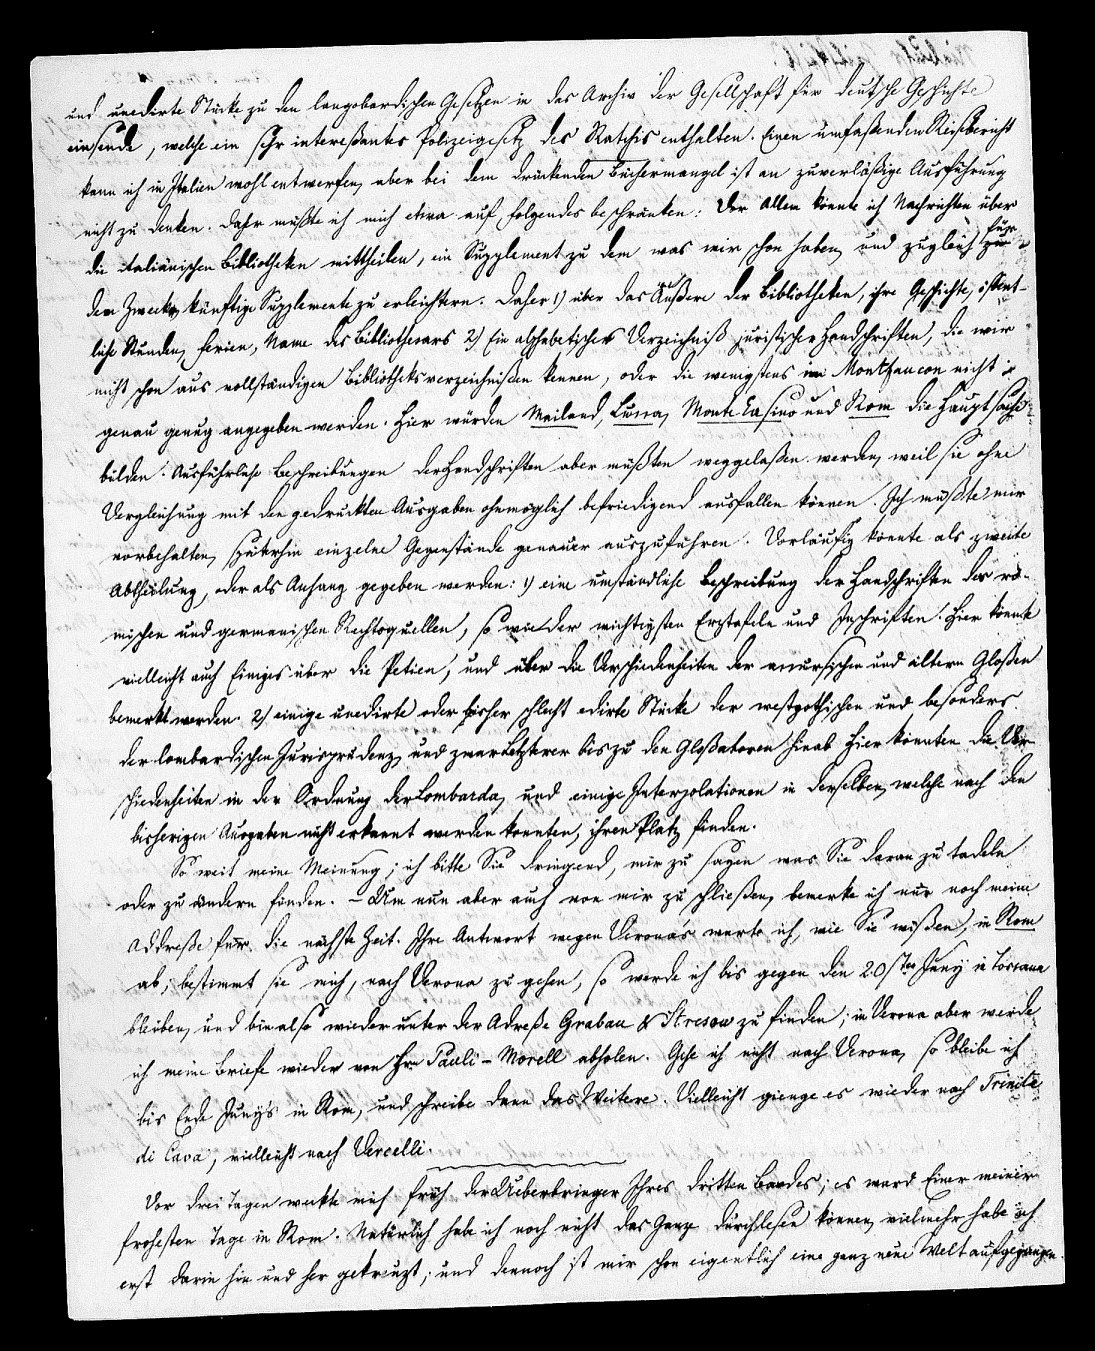 und unedirte Stücke zu den langobardischen Gesetzen in das Archiv der Gesellschaft für deutsche Geschichte
einsende, welche ein sehr interessantes Polizeigesetz des Ratchis enthalten. Einen umfassenden Reisebericht
kann ich in Italien wohl entwerfen, aber bei dem drückenden Büchermangel ist an zuverläßige Ausführung
nicht zu denken. Daher müßte ich mich etwa auf folgendes beschränken: Vor Allem könnte ich Nachrichten über
die italiänischen Bibliotheken mittheilen, ein Supplement zu dem was wir schon haben, und zugleich für
den Zweck, künftige Supplemente zu erleichtern. Daher 1) über das Äußere der Bibliotheken, ihre Geschichte, öffent-
liche Stunden, Ferien, Name des Bibliothecars 2) Ein alphabetisches Verzeichniß juristischer Handschriften, die wir
nicht schon aus vollständigen Bibliotheksverzeichnißen kennen, oder die wenigstens im Montfaucon nicht
genau genug angegeben werden. Hier würden Mailand, Lucca, Monte Casino und Rom die Hauptsache
bilden. Ausführliche Beschreibungen der Handschriften aber müßten weggelaßen werden, weil sie ohne
Vergleichung mit den gedruckten Ausgaben ohnmöglich befriedigend ausfallen können. Ich müßte mir
vorbehalten, späterhin einzelne Gegenstände genauer auszuführen. Vorläufig könnte als zweite
Abtheilung, oder als Anhang gegeben werden: 1) eine umständliche Beschreibung der Handschriften der rö-
mischen und germanischen Rechtsquellen, so wie der wichtigsten Erztafeln und Inschriften. Hier könnte
vielleicht auch Einiges über die Petien, und über die Verschiedenheiten der accursischen und ältern Gloßen
bemerkt werden. 2) einige unedirte oder bisher schlecht edirte Stücke der westgothischen und besonders
der lombardischen Jurisprudenz, und zwar letzterer bis zu den Gloßatoren hinab. Hier könnten die Ver-
schiedenheiten in der Ordnung der Lombarda, und einige Interpolationen in derselben, welche nach den
bisherigen Ausgaben nicht erkannt werden konnten, ihren Platz finden.
So weit meine Meinung; ich bitte Sie dringend, mir zu sagen was Sie daran zu tadeln
oder zu ändern finden. – Um nun aber auch von mir zu schließen, bemerke ich nur noch meine
Addreße für die nächste Zeit. Ihre Antwort wegen Veronas warte ich, wie Sie wißen, in Rom
ab; bestimmt sie mich, nach Verona zu gehen, so werde ich bis gegen den 20sten Juny in Toscana
bleiben, und bin also wieder unter der Adreße Grabau & Stresow zu finden; in Verona aber werde
ich meine Briefe wieder von Hrn Pauli-Morell abholen. Gehe ich nicht nach Verona, so bleibe ich
bis Ende Juny's in Rom, und schreibe dann das Weitere. Vielleicht gienge es wieder nach Trinità
di Cava, vielleicht nach Vercelli.
Vor drei Tagen weckte mich früh der Ueberbringer Ihres dritten Bandes; es ward Einer meiner
frohesten Tage in Rom. Natürlich habe ich noch nicht das Ganze durchlesen können, vielmehr habe ich
erst darin hin und her gekreuzt; und dennoch ist mir schon eigentlich eine ganz neue Welt aufgegangen.